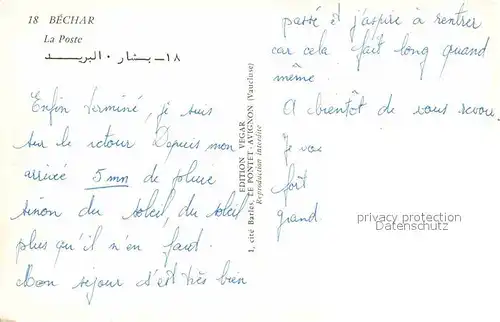 18 BÉCHAR
La Poste
١٨ - بشار · البريد
Enfin terminé, je suis
sur le retour Depuis mon
arrivée 5 mn de pluie
sinon du soleil, du soleil
plus qu'il n'en faut.
Mon sejour s'est très bien
EDITION VEGAR
1, cité Barles, LE PONTET-AVIGNON (Vaucluse)
Reproduction interdite
passé et j'aspire à rentrer
car cela fait long quand
même.
A bientôt de vous revoir.
Je vous
fort
grand
privacy protection
Datenschutz